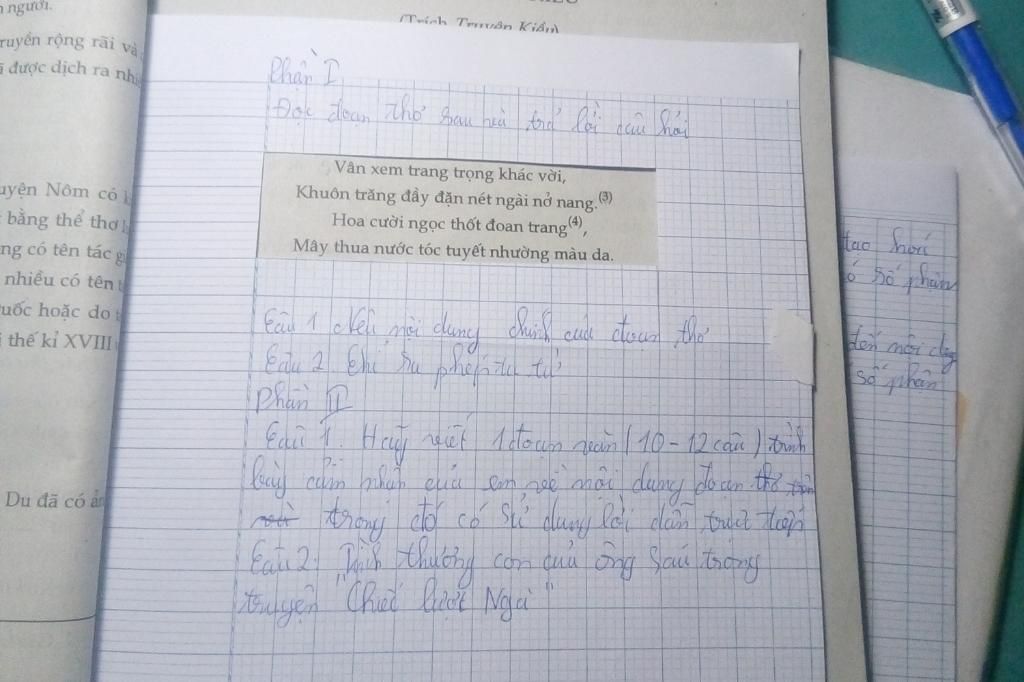 người.
(Trích Truyện Kiều)
ruyền rộng rãi và
được dịch ra nhi
Phần I
Đọc đoạn thơ sau và trả lời câu hỏi
Vân xem trang trọng khác vời,
Khuôn trăng đầy đặn nét ngài nở nang.(3)
Hoa cười ngọc thốt đoan trang(4),
Mây thua nước tóc tuyết nhường màu da.
uyện Nôm có
bằng thể thơ
ng có tên tác
nhiều có tên
uốc hoặc do
thế kỉ XVIII
Du đã có
Câu 1 Nêu nội dung chính của đoạn thơ
Câu 2. Chỉ ra phép tu từ
Phần II
Câu 1. Hãy viết 1 đoạn văn (10-12 câu) trình
bày cảm nhận của em về nội dung đoạn thơ trên
trong đó có sử dụng lời dẫn trực tiếp
Câu 2. Tình thương con của ông Sáu trong
truyện "Chiếc lược Ngà"
tạo
số phận
đến nội dg
số phận